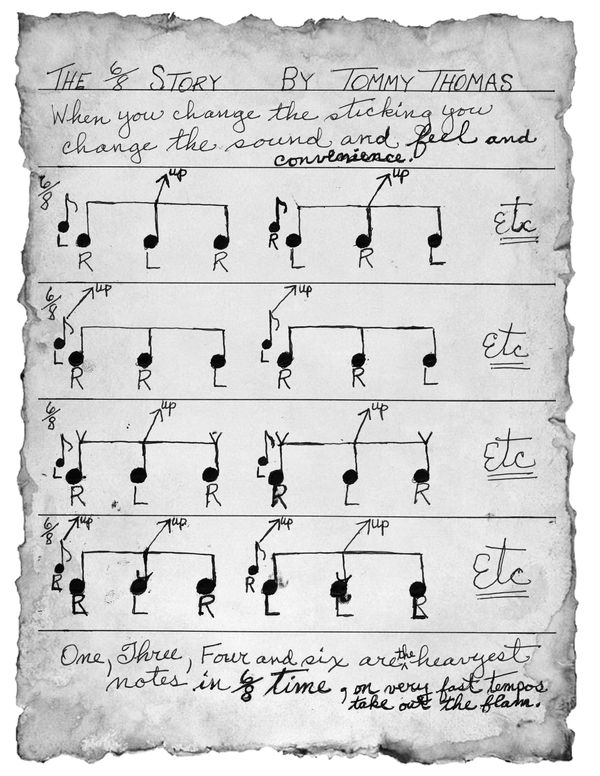 THE 6/8 STORY BY TOMMY THOMAS
When you change the sticking you
change the sound and feel and
convenience.
6/8 up up
L R L R R L R L Etc
6/8 up up
L R R L L R R L Etc
6/8 up up
L R L R L R L R Etc
6/8 up up up up
R L L R R L L R Etc
One, Three, Four and six are the heavyest
notes in 6/8 time, on very fast tempos
take out the flam.